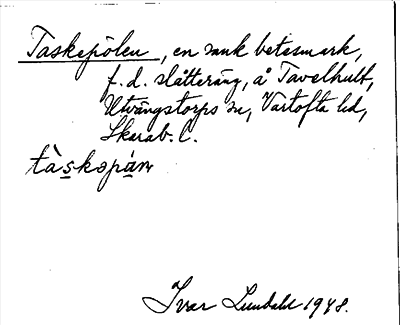 Taskepölen, en sank betesmark,
f.d. slåtteräng, å Tavelhult,
Utvängstorps sn, Vartofta hd,
Skarab. l.
tàskəpàn
Ivar Lundahl 1948.